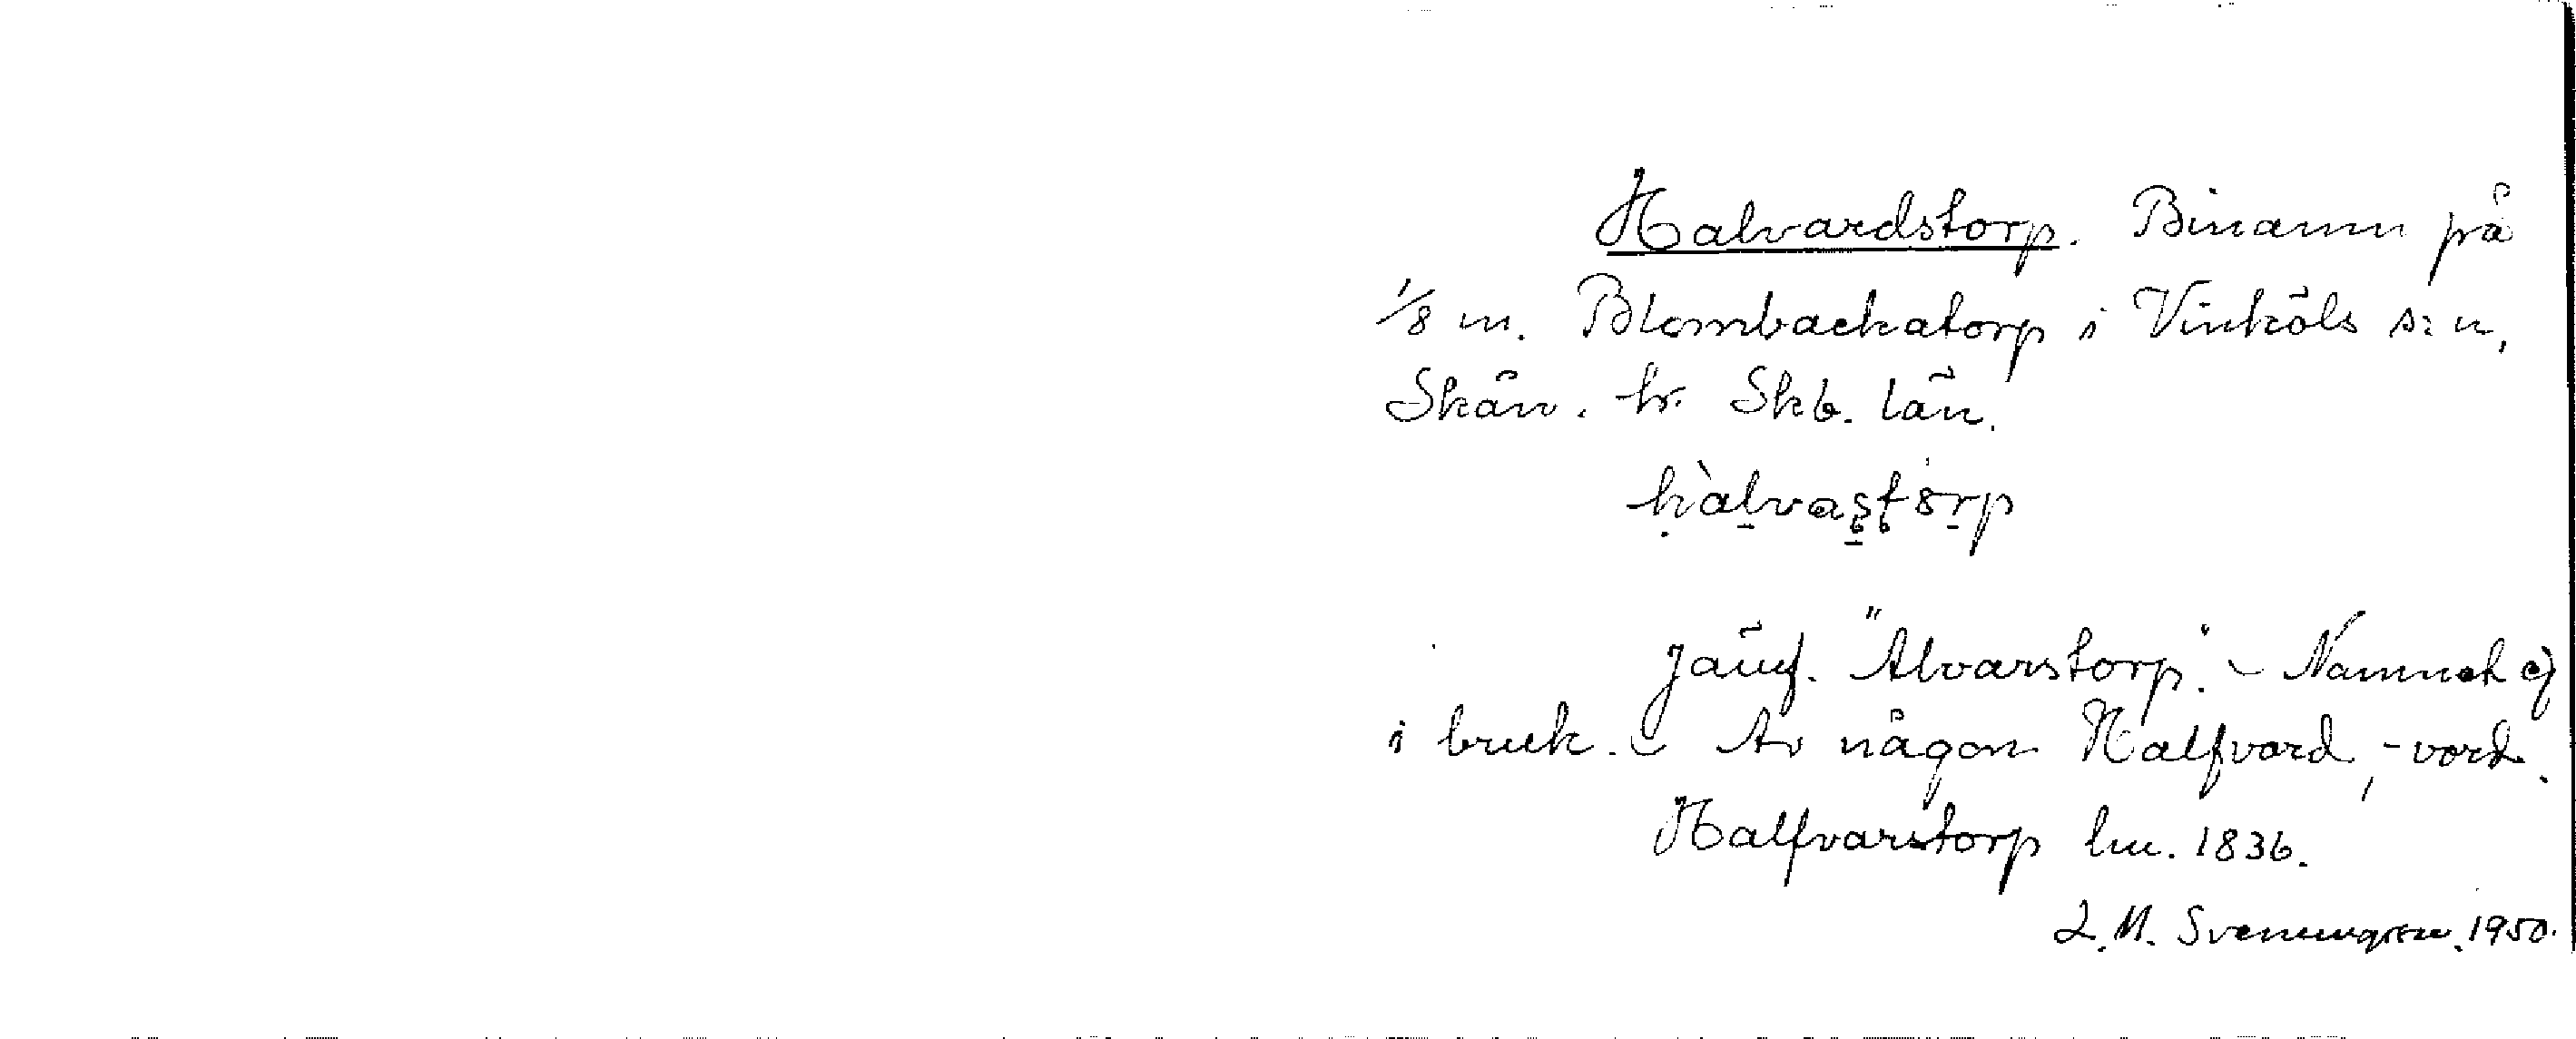 Halvardstorp. Binamn på
1/8 m. Blombackatorp i Vinköls s:n,
Skån. hr. Skb. län.
hàlvastorp
Jämf. "Alvarstorp". – Namnet ej
i bruk. – Av någon Halfvard, -vord.
Halfvarstorp hm. 1836.
L. M. Svenungsson. 1950.